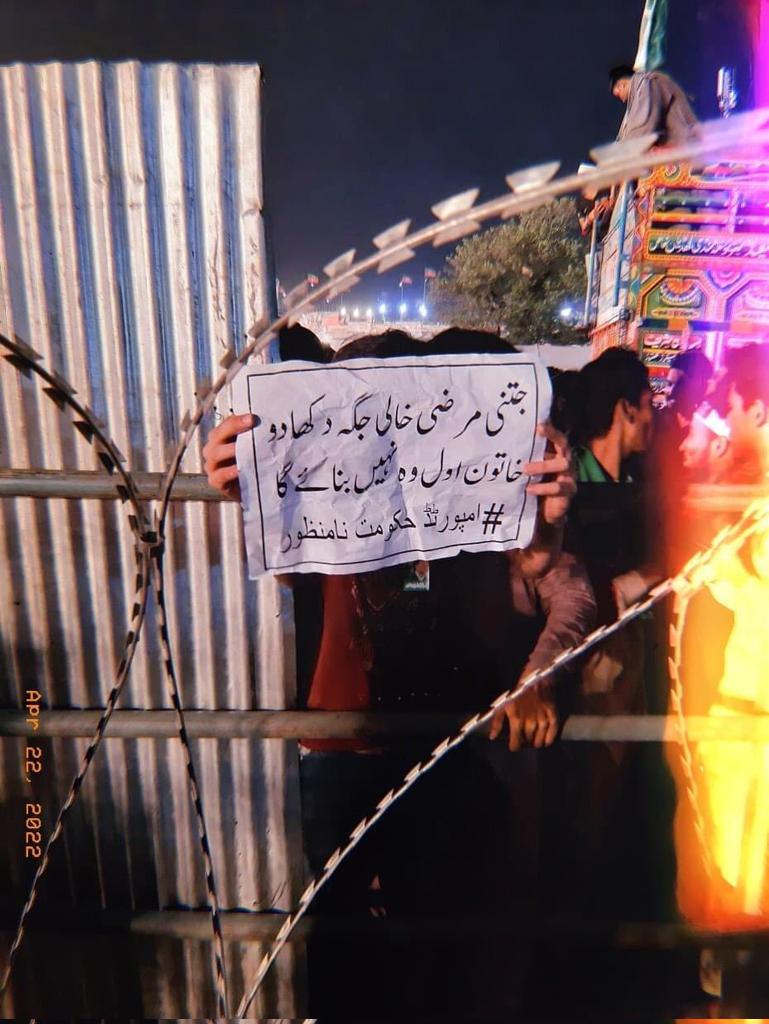 جتنی مرضی خالی جگہ دکھا دو
خاتون اول وہ نہیں بنائے گا
#امپورٹڈ حکومت نامنظور
Apr 22, 2022